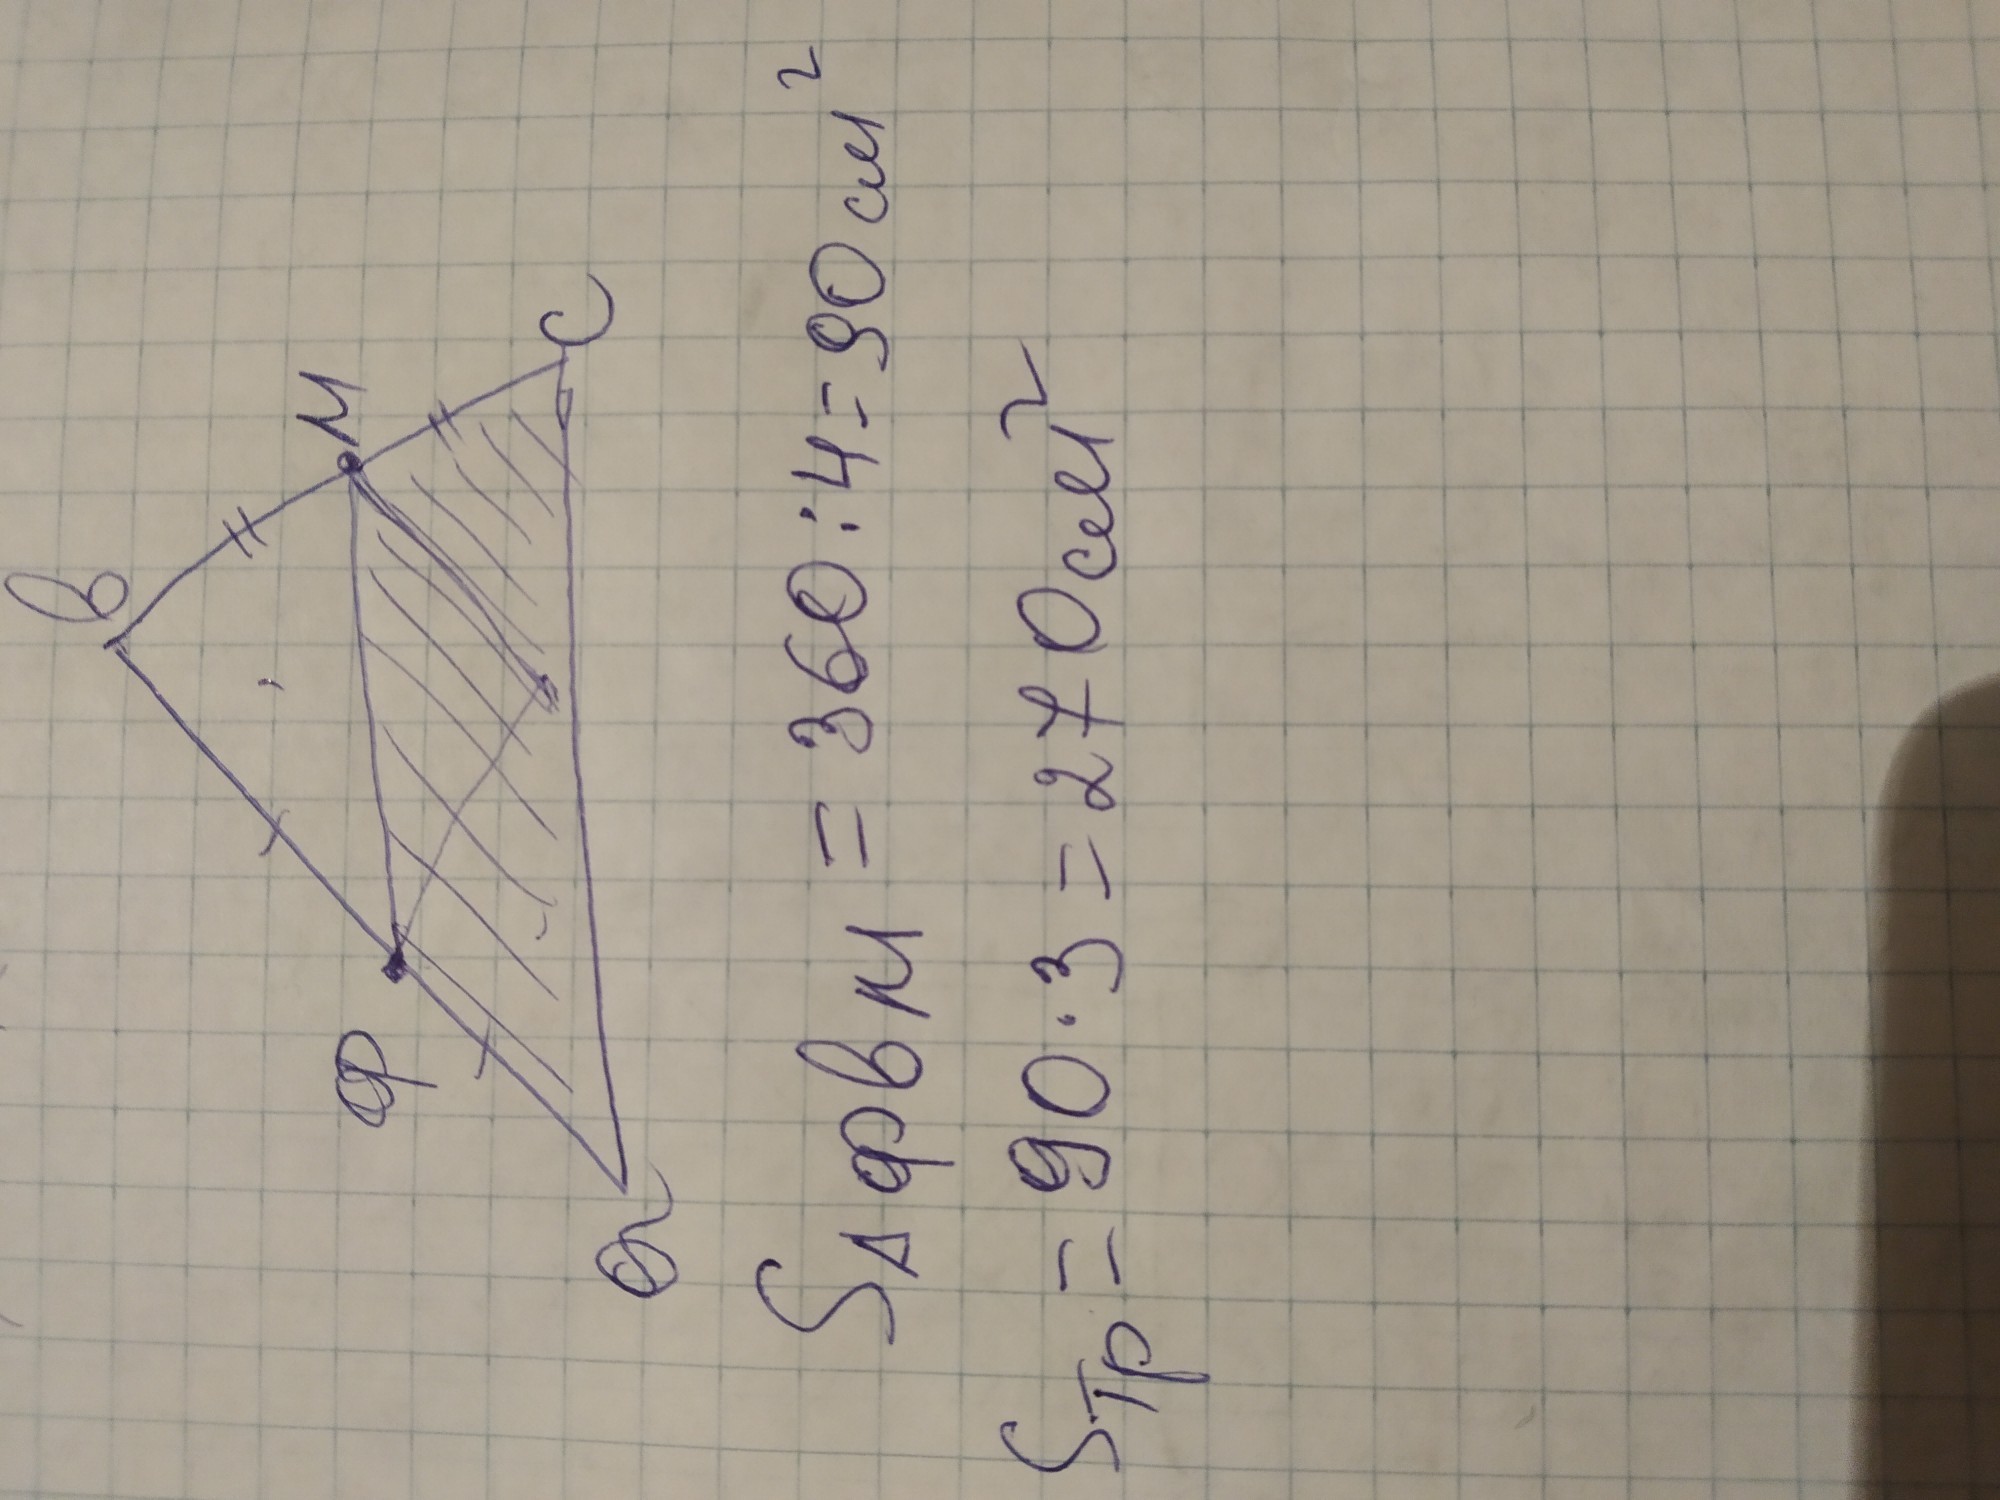 В
М
ф
С
а
S△фвм = 360:4=90см²
Sтр = 90·3=270см²